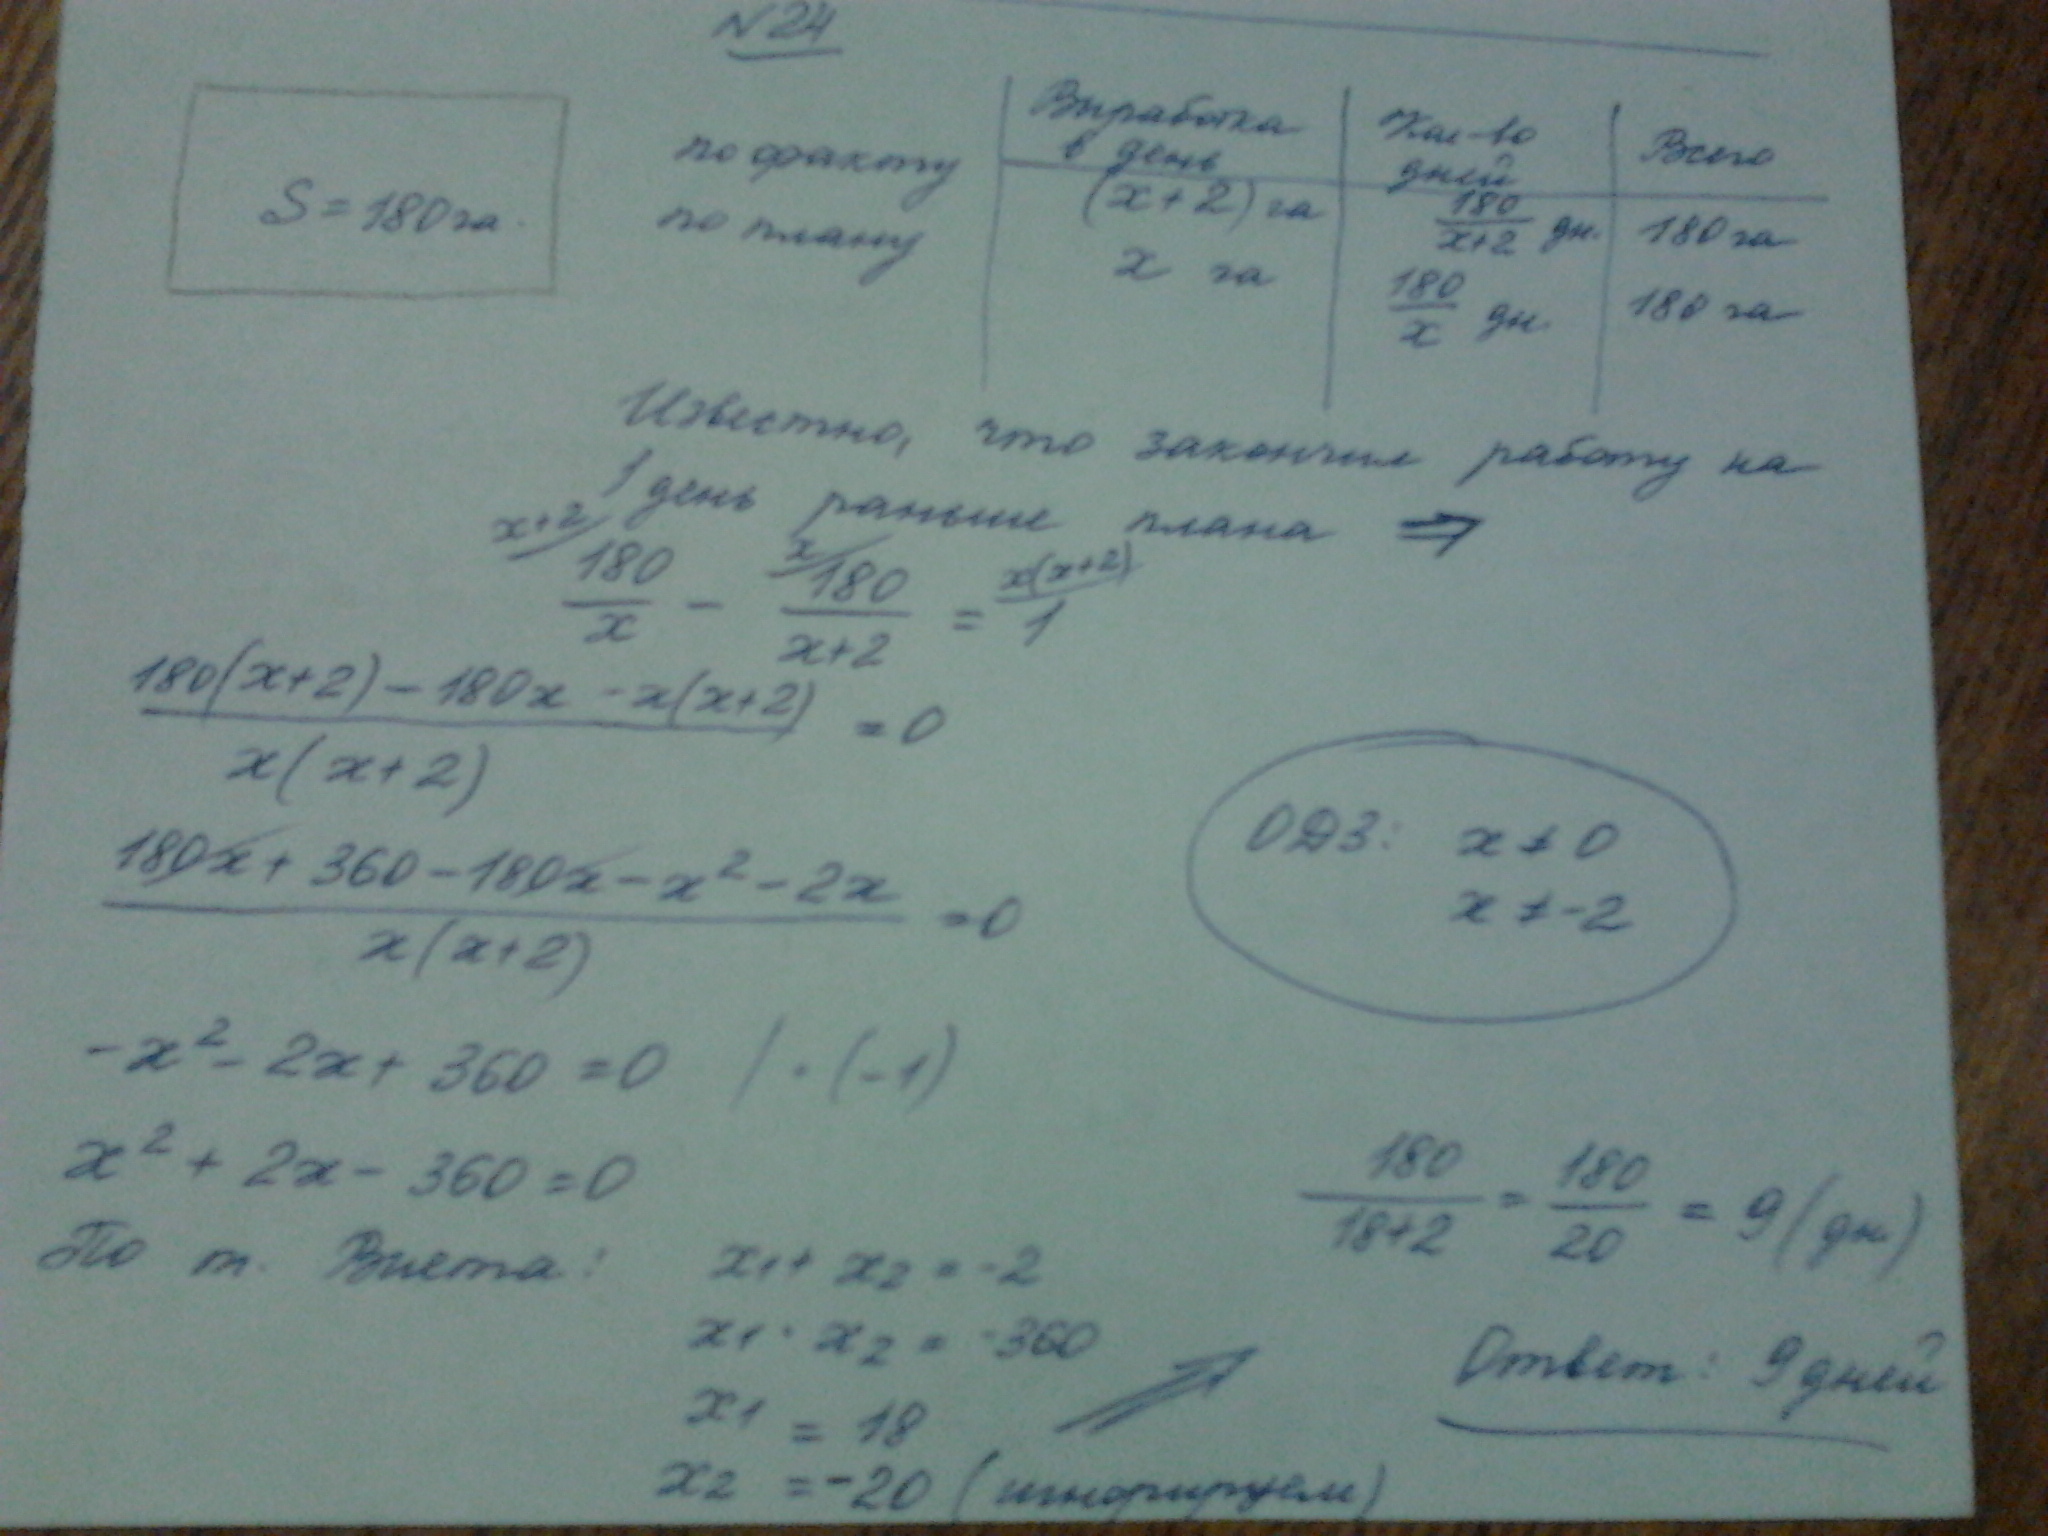 N 24
S = 180 га.
Выработка в день | Кол-во дней | Всего
по факту | (x+2) га | 180/(x+2) дн. | 180 га
по плану | x га | 180/x дн. | 180 га
Известно, что закончил работу на
1 день раньше плана ⇒
x+2/ 180/x - x/ 180/(x+2) = x(x+2)/ 1
(180(x+2) - 180x - x(x+2))/(x(x+2)) = 0
(180x + 360 - 180x - x² - 2x)/(x(x+2)) = 0
ОДЗ: x ≠ 0
x ≠ -2
-x² - 2x + 360 = 0 / · (-1)
x² + 2x - 360 = 0
По т. Виета: x1 + x2 = -2
x1 · x2 = -360
x1 = 18
x2 = -20 (игнорируем)
180/(18+2) = 180/20 = 9 (дн)
Ответ: 9 дней